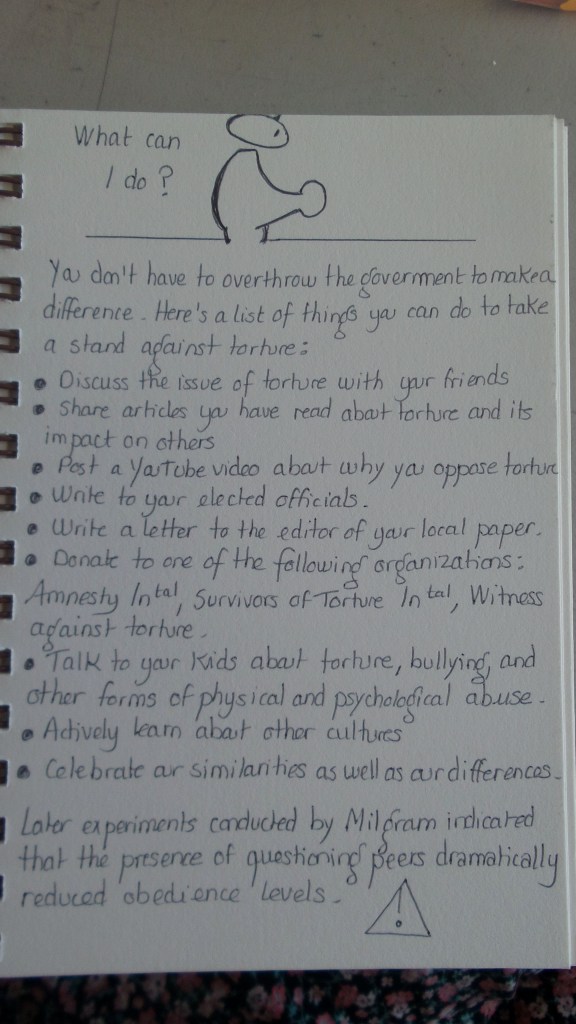 What can
I do?
You don't have to overthrow the goverment to make a
difference. Here's a list of things you can do to take
a stand against torture:
• Discuss the issue of torture with your friends
• Share articles you have read about torture and its
impact on others
• Post a YouTube video about why you oppose torture
• Write to your elected officials.
• Write a letter to the editor of your local paper.
• Donate to one of the following organizations:
Amnesty Intal, Survivors of Torture Intal, Witness
against torture.
• Talk to your kids about torture, bullying, and
other forms of physical and psychological abuse.
• Actively learn about other cultures
• Celebrate our similarities as well as our differences.
Later experiments conducted by Milgram indicated
that the presence of questioning peers dramatically
reduced obedience levels.
!